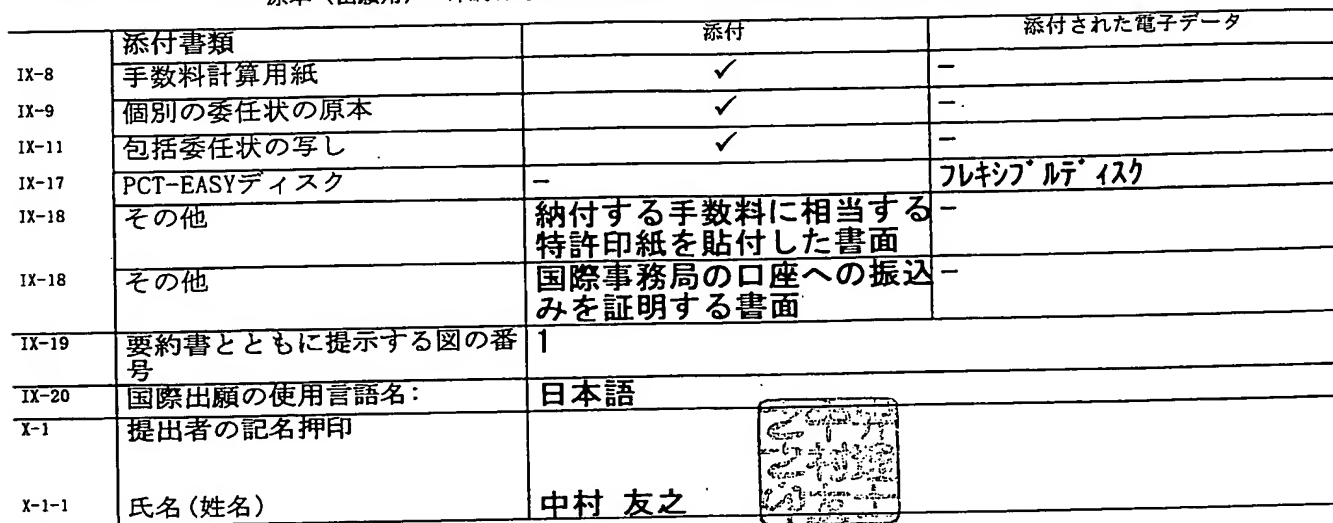 原本（出願用）
添付書類 添付 添付された電子データ
IX-8 手数料計算用紙 ✓ −
IX-9 個別の委任状の原本 ✓ −
IX-11 包括委任状の写し ✓ −
IX-17 PCT-EASYディスク − フレキシブルディスク
IX-18 その他 納付する手数料に相当する −
特許印紙を貼付した書面
IX-18 その他 国際事務局の口座への振込 −
みを証明する書面
IX-19 要約書とともに提示する図の番 1
号
IX-20 国際出願の使用言語名: 日本語
X-1 提出者の記名押印
X-1-1 氏名(姓名) 中村 友之